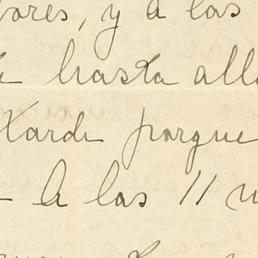 ores, y á las
hasta allá
tarde porque
A las 11